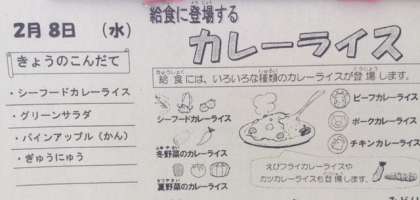 2月8日 （水）
きょうのこんだて
・シーフードカレーライス
・グリーンサラダ
・パインアップル（かん）
・ぎゅうにゅう
給食に登場する
カレーライス
給食には、いろいろな種類のカレーライスが登場します。
シーフードカレーライス
冬野菜のカレーライス
夏野菜のカレーライス
ビーフカレーライス
ポークカレーライス
チキンカレーライス
えびフライカレーライスや
カツカレーライスも登場します。